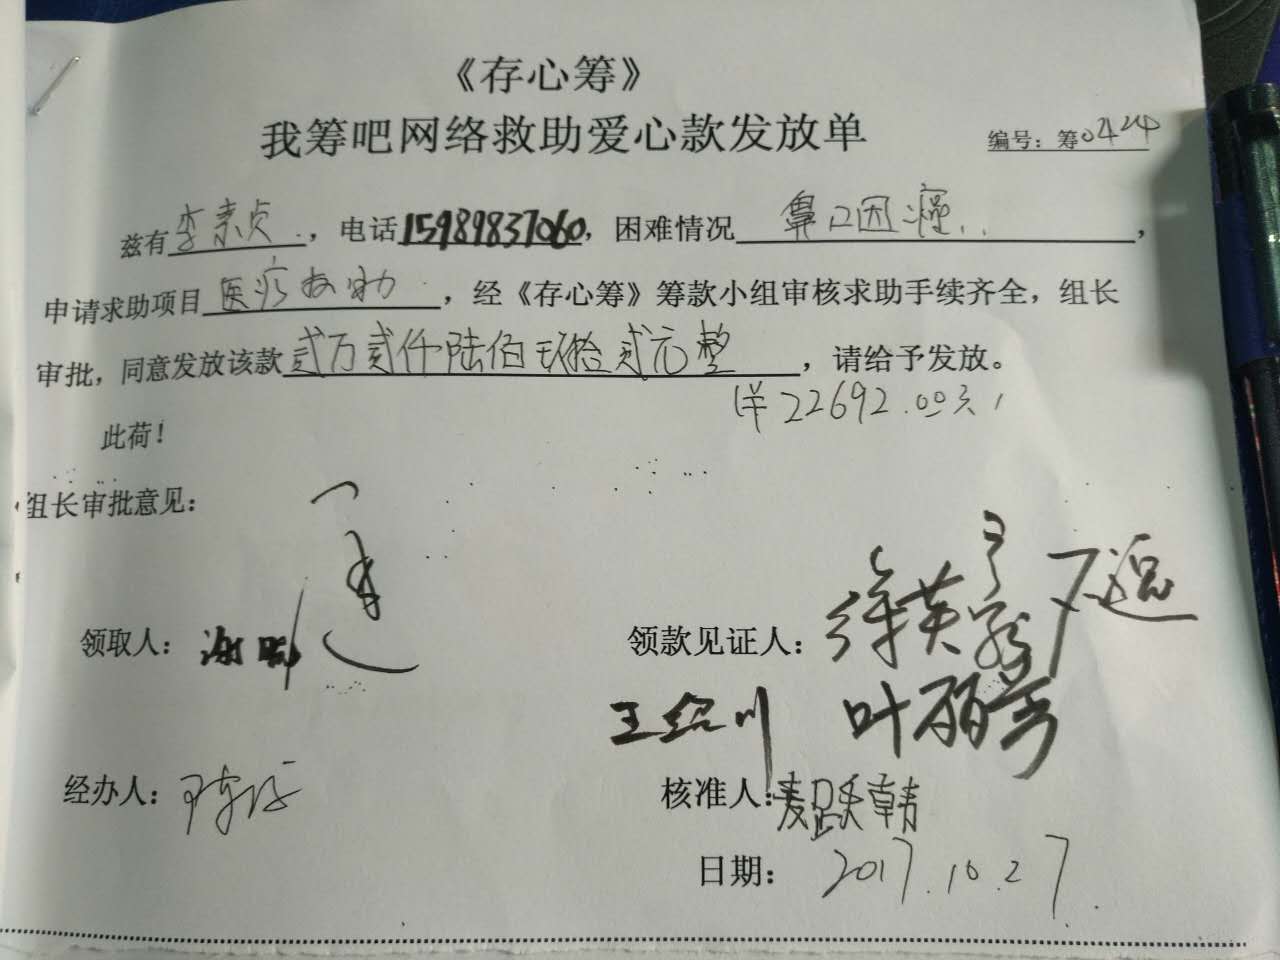 《存心筹》
我筹吧网络救助爱心款发放单
编号：筹0424
兹有李素贞，电话15989837060，困难情况鼻口因
申请求助项目医疗救助，经《存心筹》筹款小组审核求助手续齐全，组长
审批，同意发放该款贰万贰仟陆佰玖拾贰元整，请给予发放。
22692.00
此荷！
组长审批意见：
领取人：谢
领款见证人：徐英
王 川 叶丽芳
经办人：
核准人：麦
日期：2017.10.27